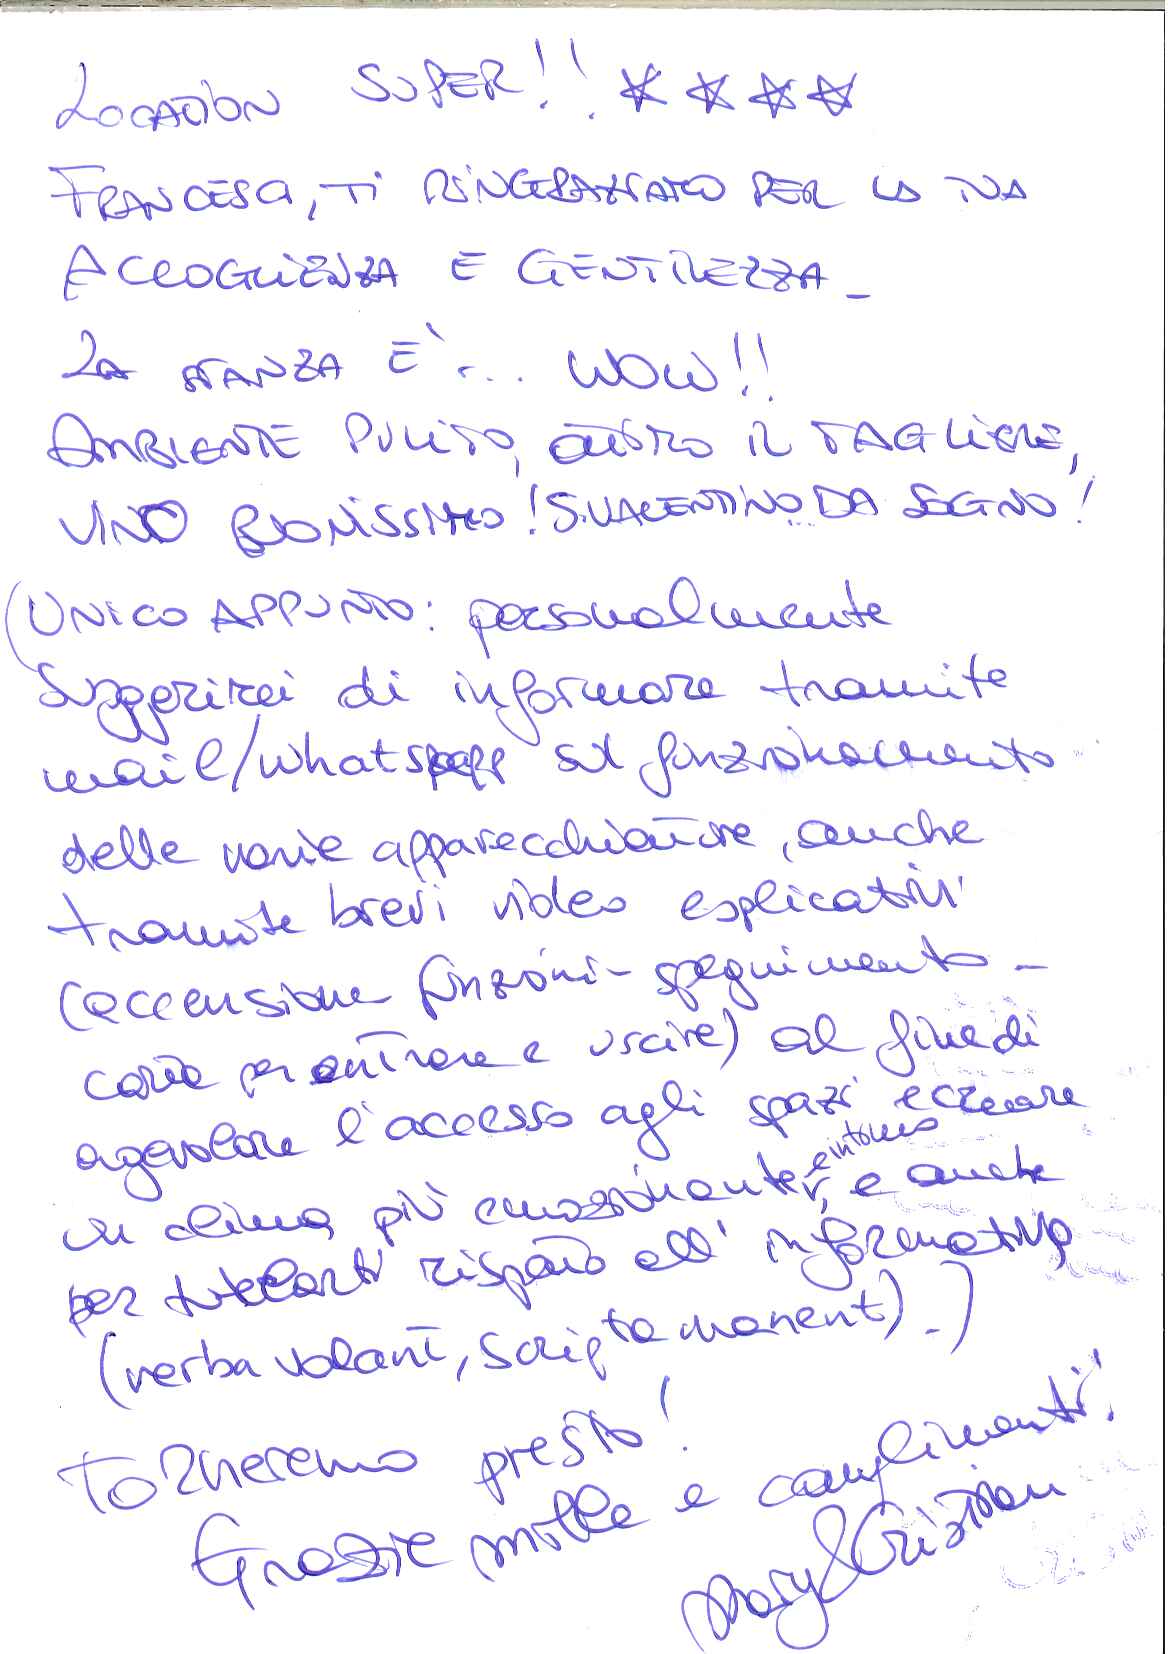 LOCATION SUPER!! ☆ ☆ ☆ ☆
FRANCESCA, TI RINGRAZIAMO PER LA TUA
ACCOGLIENZA E GENTILEZZA_
LA STANZA E' ... WOW!!
AMBIENTE PULITO, OTTIMO IL TAGLIERE,
VINO BUONISSIMO! S.VALENTINO DA SOGNO!
(UNICO APPUNTO: personalmente
suggerirei di informare tramite
mail/whatsapp sul funzionamento
delle varie apparecchiature, anche
tramite brevi video esplicativi
(accensione funzioni - spegnimento -
carta per entrare e uscire) al fine di
agevolare l'accesso agli spazi e creare
un clima più emozionante e intimo, e anche
per tutelarti rispetto all'informativa
(verba volant, scripta manent)_)
Torneremo presto!
Grazie mille e complimenti!
Mary & Cristian